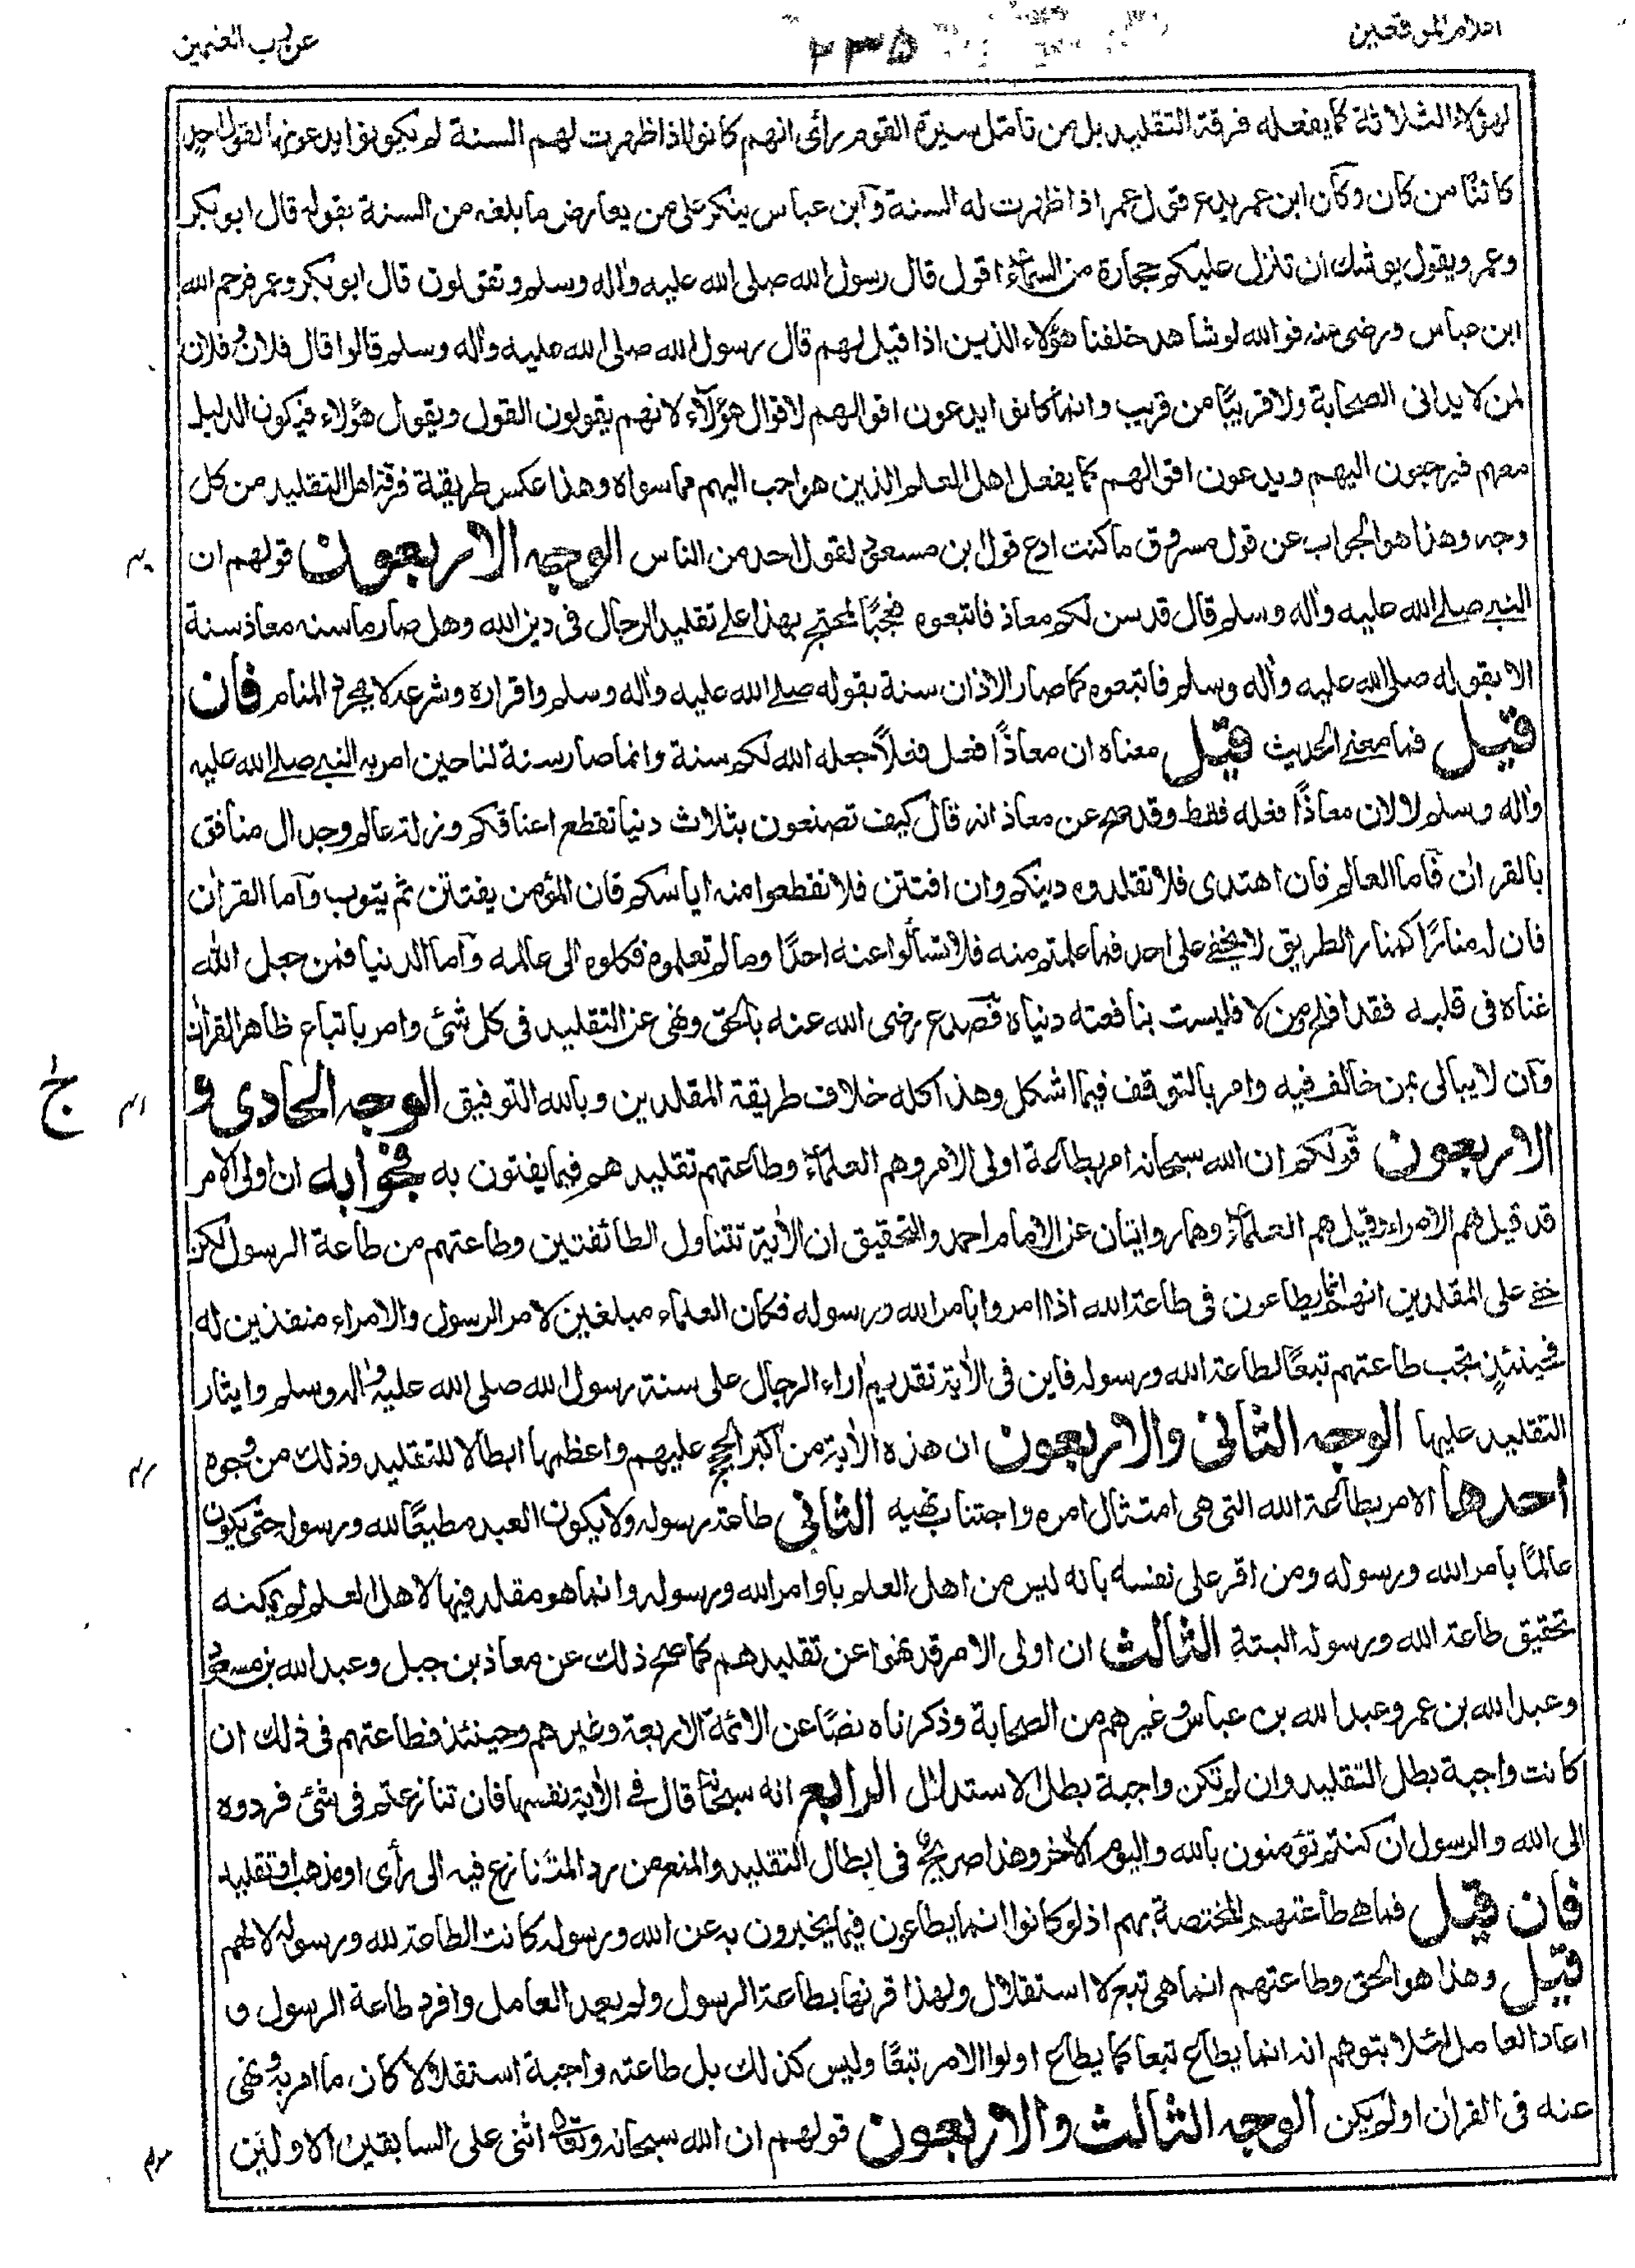 اعلام الموقعين
٢٣٥
عن رب العلمين
لهؤلاء الثلاثة كما يفعله فرقة التقليد بل من تامّل سيرة القوم رأى انهم كانوا اذا ظهرت لهم السنة لم يكونوا يدعونها لقول احد
كائنًا من كان وكان ابن عمر يدع قول عمر اذا ظهرت له السنة وآبن عباس ينكر على من يعارض ما بلغه من السنة بقوله قال ابو بكر
وعمر ويقول يوشك ان تنزل عليكم حجارة من السماء اقول قال رسول الله صلى الله عليه واٰله وسلم وتقولون قال ابو بكر وعمر فرحم الله
ابن عباس ورضى عنه فوالله لو شاهد خلفنا هؤلاء الذين اذا قيل لهم قال رسول الله صلى الله عليه واٰله وسلم قالوا قال فلان وفلان
لمن لا يدانى الصحابة ولا قريبًا من قريب وانما كانوا يدعون اقوالهم لاقوال هؤلاء لانهم يقولون القول ويقول هؤلاء فيكون الدليل
معهم فيرجعون اليهم ويدعون اقوالهم كما يفعل اهل العلم الذين هو احب اليهم مما سواه وهذا عكس طريقة فرقة اهل التقليد من كل
وجه وهذا هو الجواب عن قول مسروق ما كنت ادع قول بن مسعود لقول احد من الناس الوجه الاربعون قولهم ان
النبى صلى الله عليه واٰله وسلم قال قد سن لكم معاذ فاتبعوه فعجبًا لمحتج بهذا على تقليد الرجال فى دين الله وهل صار ما سنه معاذ سنة
الا بقوله صلى الله عليه واٰله وسلم فاتبعوه كما صار الاذان سنة بقوله صلى الله عليه واٰله وسلم واقراره وشرعه لا بمجرد المنام فان
قيل فما معنى الحديث قيل معناه ان معاذًا فعل فعلًا جعله الله لكم سنة وانما صار سنة لنا حين امر به النبى صلى الله عليه
واٰله وسلم لا لان معاذًا فعله فقط وقد صح عن معاذ انه قال كيف تصنعون بثلاث دنيا تقطع اعناقكم وزلة عالم وجدال منافق
بالقراٰن فآما العالم فان اهتدى فلا تقلدوه دينكم وان افتتن فلا تقطعوا منه اياسكم فان المؤمن يفتتن ثم يتوب وآما القراٰن
فان له منارًا كمنار الطريق لا يخفى على احد فما علمتم منه فلا تسألوا عنه احدًا وما لم تعلموه فكلوه الى عالمه وآما الدنيا فمن جعل الله
غناه فى قلبه فقد افلح ومن لا فليست بنافعته دنياه فصدع رضى الله عنه بالحق ونهى عن التقليد فى كل شئ وامر باتباع ظاهر القراٰن
وآن لا يبالى بمن خالف فيه وامر بالتوقف فيما اشكل وهذا كله خلاف طريقة المقلدين وبالله التوفيق الوجه الحادى و
الاربعون قولكم ان الله سبحانه امر بطاعة اولى الامر وهم العلماء وطاعتهم تقليدهم فيما يفتون به فجوابه ان اولى الامر
قد قيل هم الامراء وقيل هم العلماء وهما روايتان عن الامام احمد والتحقيق ان الاٰية تتناول الطائفتين وطاعتهم من طاعة الرسول لكن
خفى على المقلدين انهم انما يطاعون فى طاعة الله اذا امروا بامر الله ورسوله فكان العلماء مبلغين لامر الرسول والامراء منفذين له
فحينئذٍ تجب طاعتهم تبعًا لطاعة الله ورسوله فاين فى الاٰية تقديم اٰراء الرجال على سنة رسول الله صلى الله عليه واٰله وسلم وايثار
التقليد عليها الوجه الثانى والاربعون ان هذه الاٰية من اكبر الحجج عليهم واعظمها ابطالا للتقليد وذلك من وجوه
احدها الامر بطاعة الله التى هى امتثال امره واجتناب نهيه الثانى طاعة رسوله ولا يكون العبد مطيعًا لله ورسوله حتى يكون
عالمًا بامر الله ورسوله ومن اقر على نفسه بانه ليس من اهل العلم باوامر الله ورسوله وانما هو مقلد فيها لاهل العلم لم يمكنه
تحقيق طاعة الله ورسوله البتة الثالث ان اولى الامر قد نهوا عن تقليدهم كما صح ذلك عن معاذ بن جبل وعبد الله بن مسعود
وعبد الله بن عمر وعبد الله بن عباس وغيرهم من الصحابة وذكرناه نصًا عن الائمة الاربعة وغيرهم وحينئذ فطاعتهم فى ذلك ان
كانت واجبة بطل التقليد وان لم تكن واجبة بطل الاستدلال الرابع انه سبحانه قال فى الاٰية نفسها فان تنازعتم فى شئ فردوه
الى الله والرسول ان كنتم تؤمنون بالله واليوم الاٰخر وهذا صريح فى ابطال التقليد والمنع من رد المتنازع فيه الى رأى او مذهب او تقليد
فان قيل فما هى طاعتهم المختصة بهم اذ لو كانوا انما يطاعون فيما يخبرون به عن الله ورسوله كانت الطاعة لله ورسوله لا لهم
قيل وهذا هو الحق وطاعتهم انما هى تبع لا استقلال ولهذا قرنها بطاعة الرسول ولم يعد العامل وافرد طاعة الرسول و
اعاد العامل لئلا يتوهم انه انما يطاع تبعا كما يطاع اولوا الامر تبعًا وليس كذلك بل طاعته واجبة استقلالا كان ما امر به ونهى
عنه فى القراٰن او لم يكن الوجه الثالث والاربعون قولهم ان الله سبحانه وتعالى اثنى على السابقين الاولين